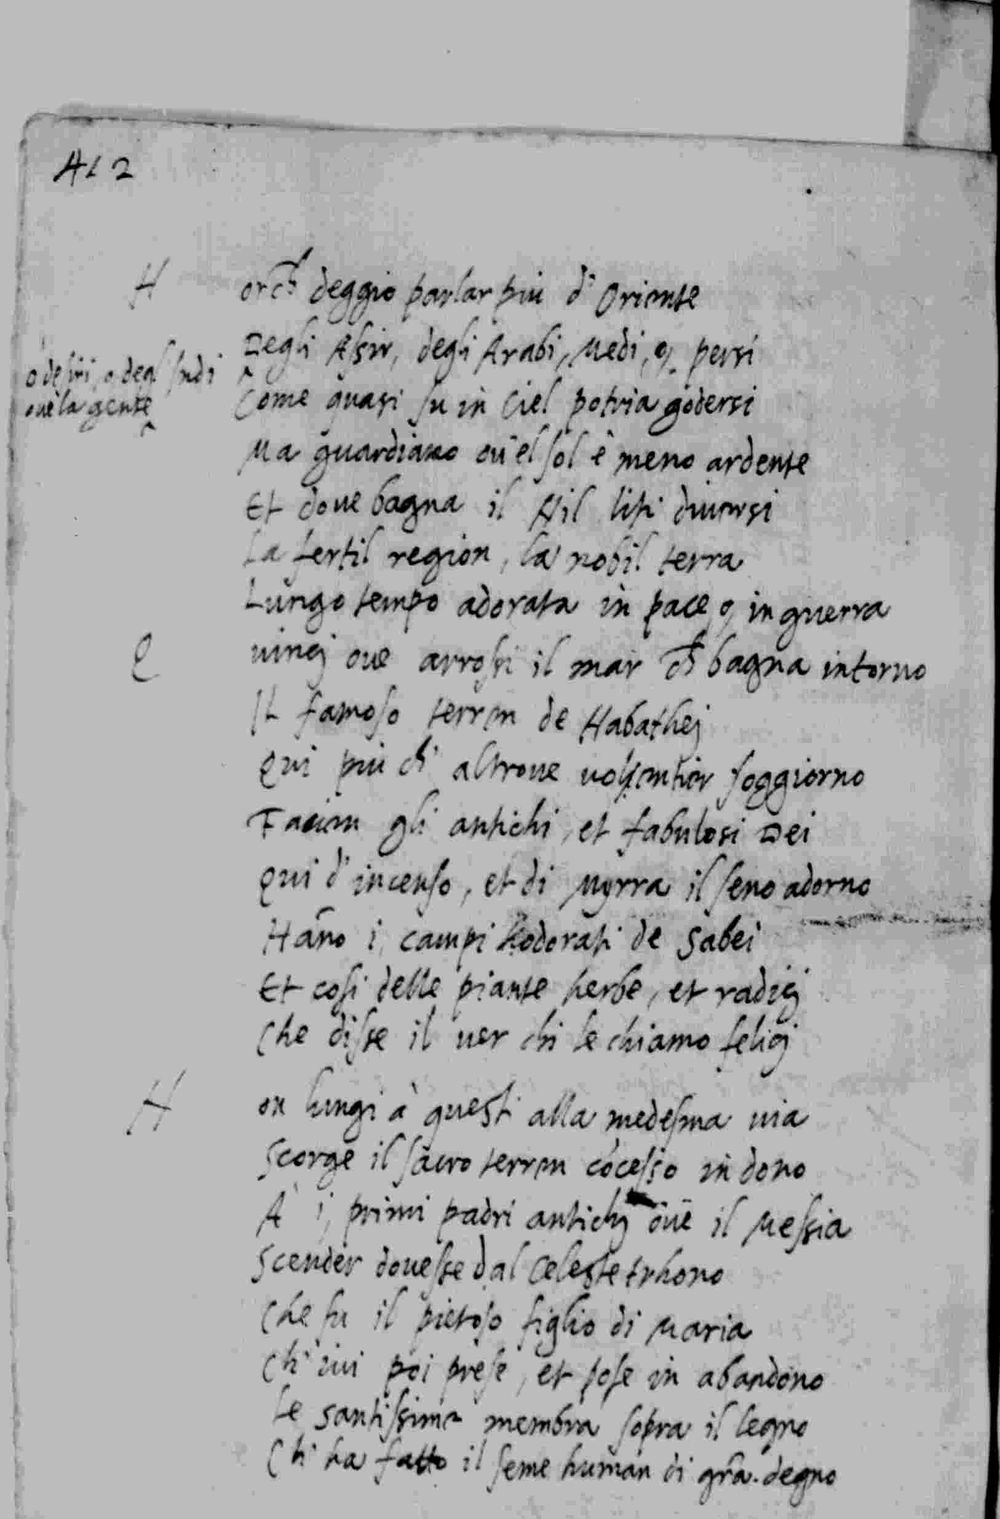 412
H orch' deggio parlar piu d'Oriente
Degli Assir, degli Arabi, Medi, et persi
o de siri, o degl'Indi
oue la gente
Come quasi su in Ciel potria godersi
Ma guardiamo ou'el sol è meno ardente
Et doue bagna il Nil liti diuersi
La fertil region, la nobil terra
Lungo tempo adorata in pace, et in guerra
Q uinci oue arrossi il mar ch' bagna intorno
Il famoso terren de Nabathei
Qui piu ch' altroue uolentier soggiorno
Facien gli antichi, et fabulosi Dei
Qui d'incenso, et di Myrra il seno adorno
Hano i campi hodorati de Sabei
Et cosi delle piante herbe, et radici
Che disse il uer chi le chiamo felici
N on lungi à questi alla medesma uia
Scorge il sacro terren cocesso in dono
A i primi padri antichi oue il Messia
Scender douesse dal Celeste trhono
Che fu il pietoso figlio di Maria
Ch'iui poi prese, et pose in abandono
Le santissime membra sopra il legno
Ch' ha fatto il seme human di gra degno